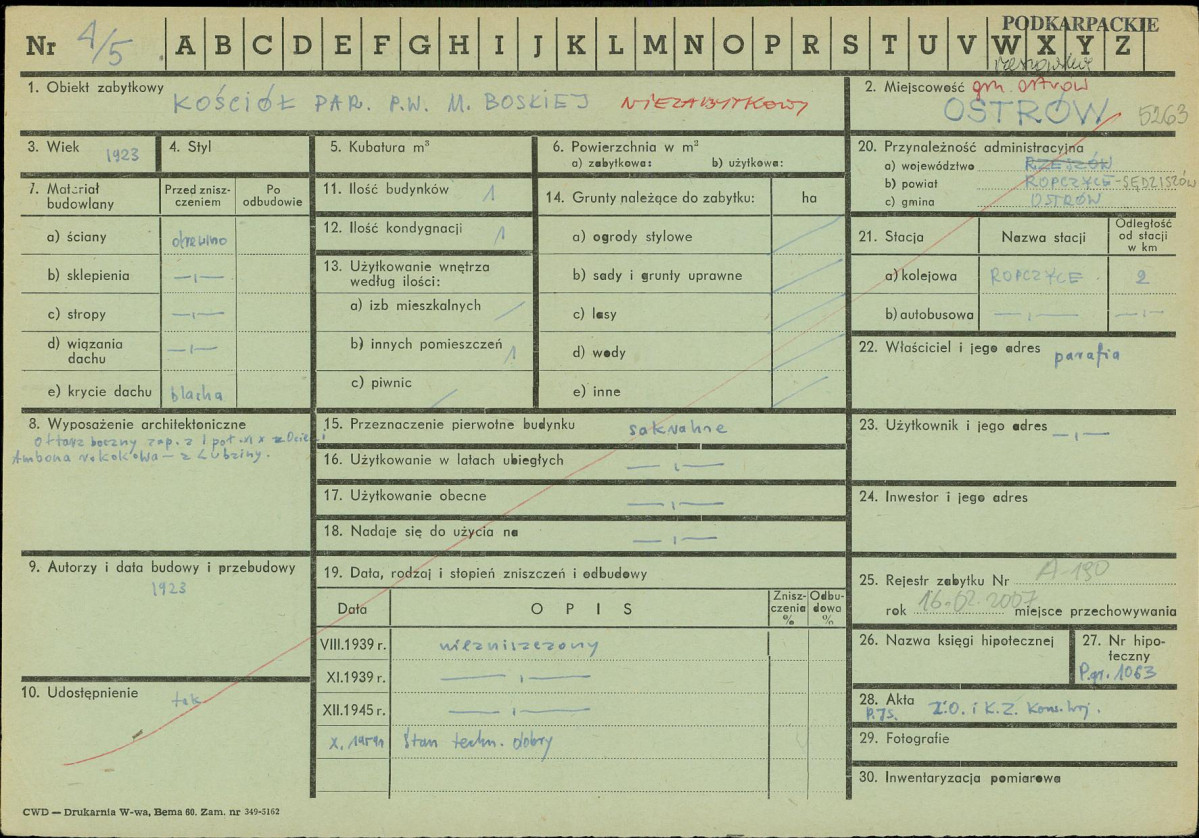 PODKARPACKIE
Nr 4/5 . A B C D E F G H I J K L M N O P R S T U V W X Y Z
rzeszowskie
1. Obiekt zabytkowy KOŚCIÓŁ PAR. P.W. M. BOSKIEJ NIEZABYTKOWY
2. Miejscowość gm. Ostrów
OSTRÓW 5263
3. Wiek 1923
4. Styl
5. Kubatura m³
6. Powierzchnia w m²
a) zabytkowa: b) użytkowa:
20. Przynależność administracyjna
a) województwo RZESZÓW
b) powiat ROPCZYCE-SĘDZISZÓW
c) gmina OSTRÓW
7. Materiał budowlany
Przed zniszczeniem
Po odbudowie
a) ściany drewno
b) sklepienia —ı—
c) stropy —ı—
d) wiązania dachu —ı—
e) krycie dachu blacha
11. Ilość budynków 1
12. Ilość kondygnacji 1
13. Użytkowanie wnętrza według ilości:
a) izb mieszkalnych /
b) innych pomieszczeń 1
c) piwnic /
14. Grunty należące do zabytku: ha
a) ogrody stylowe
b) sady i grunty uprawne
c) lasy
d) wody
e) inne
21. Stacja Nazwa stacji Odległość od stacji w km
a) kolejowa ROPCZYCE 2
b) autobusowa —ı— —ı—
22. Właściciel i jego adres parafia
8. Wyposażenie architektoniczne
Ołtarz boczny zap. z I poł. w. X z
Ambona rokokowa – z Lubziny.
15. Przeznaczenie pierwotne budynku sakralne
16. Użytkowanie w latach ubiegłych —ı—
17. Użytkowanie obecne —ı—
18. Nadaje się do użycia na —ı—
23. Użytkownik i jego adres —ı—
24. Inwestor i jego adres
9. Autorzy i data budowy i przebudowy
1923
10. Udostępnienie tak
19. Data, rodzaj i stopień zniszczeń i odbudowy
Data OPIS Zniszczenia % Odbudowa %
VIII.1939 r. niezniszczony
XI.1939 r. —ı—
XII.1945 r. —ı—
X. 1959 Stan techn. dobry
25. Rejestr zabytku Nr A-190
rok 16.02.2007 miejsce przechowywania
26. Nazwa księgi hipotecznej
27. Nr hipoteczny
P.gr. 1063
28. Akta
P.75. Z.O. i K.Z. Kons. woj.
29. Fotografie
30. Inwentaryzacja pomiarowa
CWD — Drukarnia W-wa, Bema 60. Zam. nr 349-5162